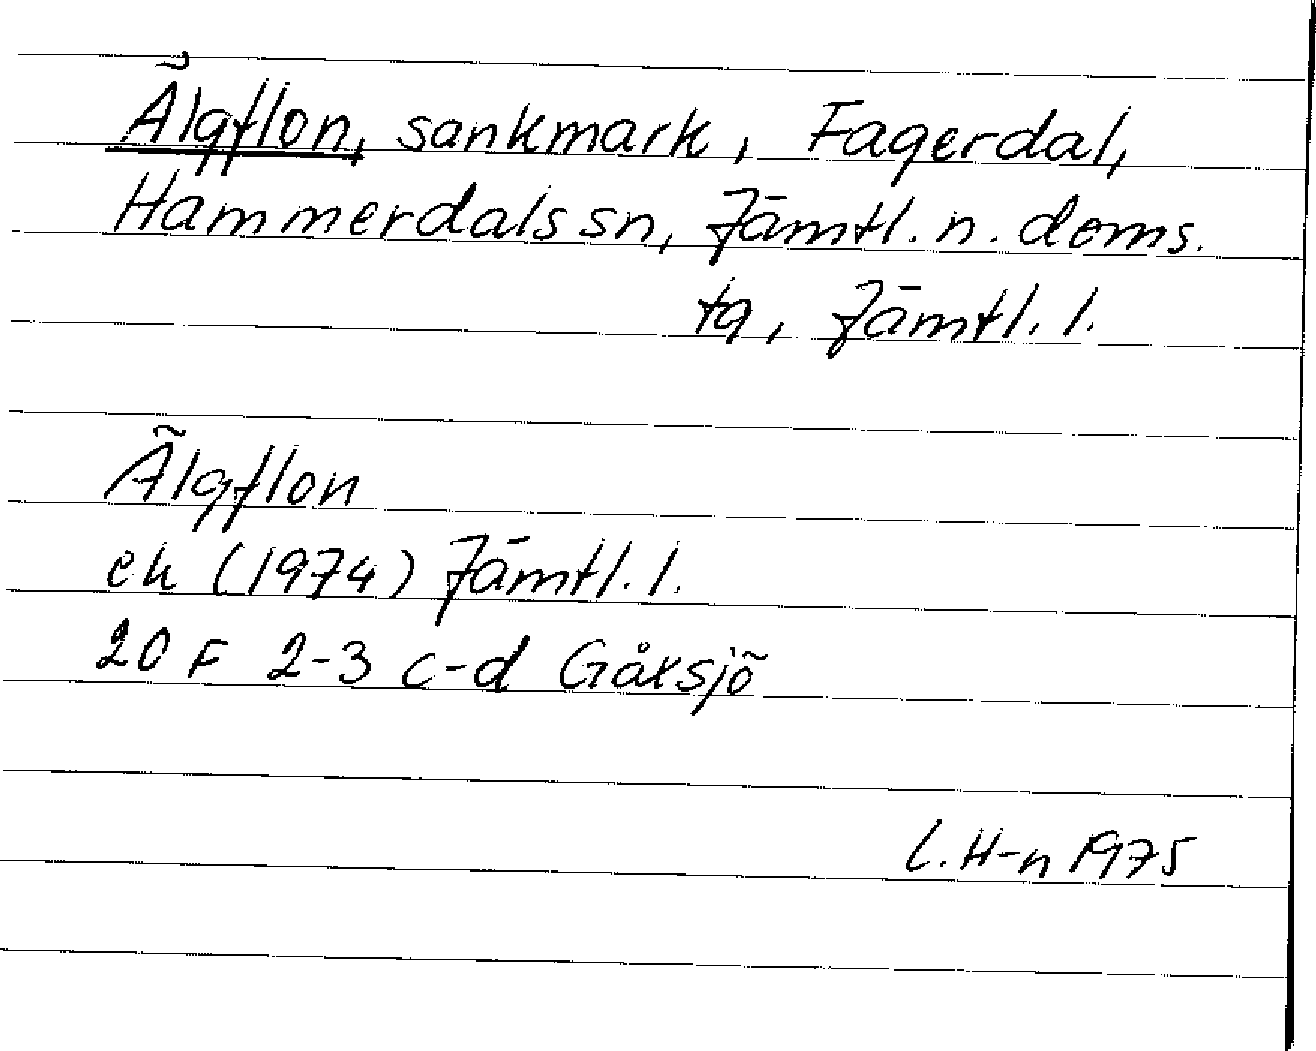 Älgflon, sankmark, Fagerdal,
Hammerdals sn, Jämtl. n. doms.
tg, Jämtl. l.
Älgflon
ek (1974) Jämtl. l.
20 F 2-3 c-d Gåxsjö
L. H-n 1975